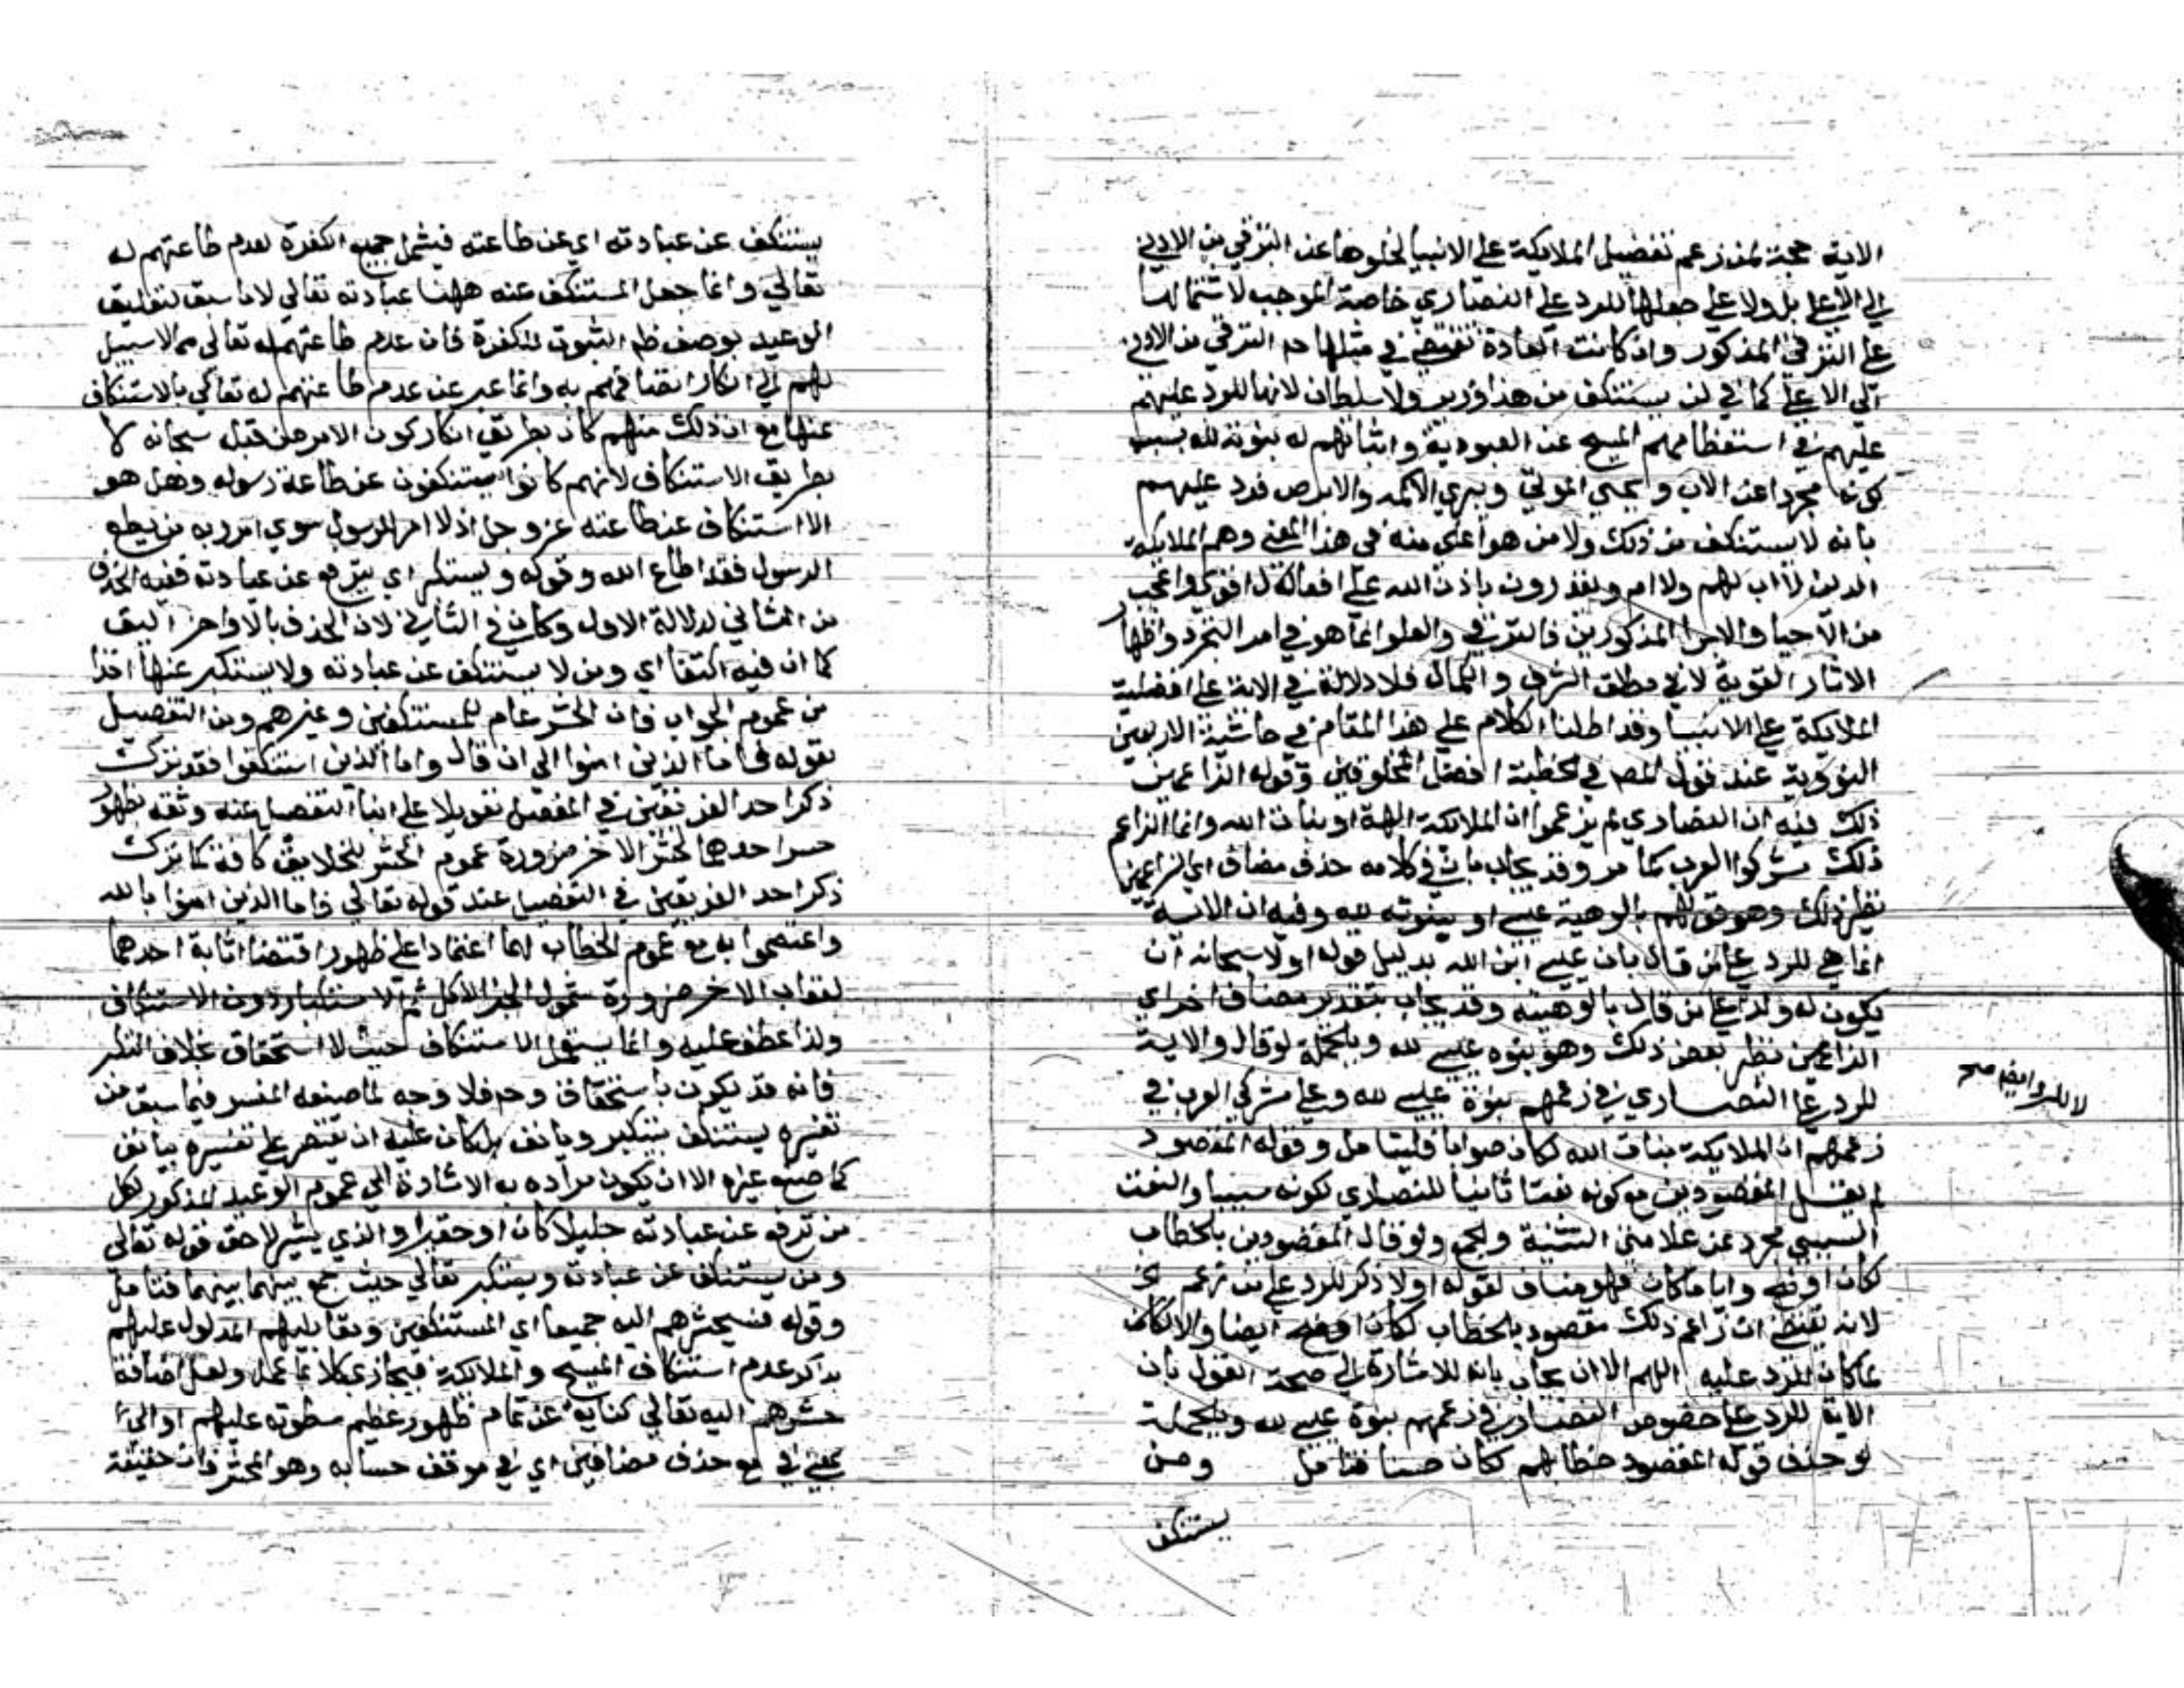 الاية حجة لمن زعم تفضيل الملايكة على الانبيا لخلوها عن الترقي من الادني
الي الاعلا بل ولا على جعلها للرد على النصاري خاصة الموجب لاشتمالها
على الترقي المذكور وان كانت العادة تقتضي في مثلها حم الترقي من الادني
الي الاعلي كما في لن يستنكف من هذا وزير ولا سلطان لانها للرد عليهم
عليهم في استعظامهم المسيح عن العبودية واثباتهم له بنوته لله بسبب
كونه مجردا عن الاب و يحيي الموتي ويبري الاكمه والابرص فرد عليهم
بانه لا يستنكف من ذلك ولا من هو اعلى منه في هذا المعني وهم الملايكة
الذين لا اب لهم ولا ام ويقدرون باذن الله على افعال اقوي واعجب
من الاحيا والابرا المذكورين فالترقي والعلو انما هو في امر التجرد واظهار
الاثار القوية لا في مطلق الشرف والكمال فلا دلالة في الاية على افضلية
الملايكة على الانبيا وقد اطلنا الكلام على هذا المقام في حاشية الاربعين
النووية عند قول المص في خطبته افضل المخلوقين وقوله الزاعمين
ذلك فيه ان النصاري لم يزعموا ان الملائكة الهة او بنات الله وانما الزاعم
ذلك مشركوا العرب كما مر وقد يجاب بان في كلامه حذف مضاف اي الزاعمين
نظير ذلك وهو قولهم بالوهية عيسى او ببنوته لله وفيه ان الاية
انما هي للرد على من قال بان عيسى ابن الله بدليل قوله اولا سبحانه ان
يكون له ولد لا على من قال بالوهيته وقد يجاب بتقدير مضاف اخر اي
الزاعمين نظير بعض ذلك وهو بنوه عيسى لله وبالجملة لو قال والاية
للرد على النصاري في زعمهم بنوة عيسى لله وعلى مشركي العرب في
زعمهم ان الملايكة بنات الله لكان صوابا فليتامل وقوله المقصود
لم يقل المقصودين مع كونه نعتا ثانيا للنصاري لكونه سببيا والنعت
السببي مجرد عن علامتي التثنية والجمع ولو قال المقصودين بالخطاب
لكان اوضح وايا ما كان فهو مناف لقوله اولا ذكر للرد على من زعم الخ
لانه يقتضي ان زاعم ذلك مقصود بالخطاب لكان اوضح ايضا والا لكان
الرد عليه اللهم الا ان يجاب بانه للاشارة الي صحة القول بان
الاية للرد على خصوص النصاري في زعمهم بنوة عيسى لله وبالجملة
لو حذف قوله المقصود خطابهم لكان حسنا فتامل ومن
يستنكف
يستنكف عن عبادته اي عن طاعته فيشمل جميع الكفرة لعدم طاعتهم له
تعالي وانما جعل المستنكف عنه ههنا عبادته تعالي لا ما سبق لتعليق
الوعيد بوصف ظاهر الثبوت للكفرة فان عدم طاعتهم له تعالى مما لا سبيل
لهم الي انكار اتصافهم به وانما عبر عن عدم طاعتهم له تعالي بالاستنكاف
عنها مع ان ذلك منهم كان بطريق انكار كون الامر من قبله سبحانه لا
بطريق الاستنكاف لانهم كانوا يستنكفون عن طاعة رسوله وهل هو
الا استنكاف عن طاعته عز وجل اذ لا امر للرسول سوي امر ربه من يطع
الرسول فقد اطاع الله وقوله ويستكبر اي يترفع عن عبادته ففيه الحذف
من الثاني لدلالة الاول وكان في الثاني لان الحذف بالاواخر اليق
كما ان فيه اكتفا اي ومن لا يستنكف عن عبادته ولا يستكبر عنها اخذا
من عموم الجواب فان الحشر عام للمستنكفين وغيرهم ومن التفصيل
بقوله فاما الذين امنوا الى ان قال واما الذين استنكفوا فقد ترك
ذكر احد الفريقين في المفصل تعويلا على انبا التفصيل عنه وثقة بظهور
حشر احدهما لحشر الاخر ضرورة عموم الحشر للخلايق كافة كما ترك
ذكر احد الفريقين في التفصيل عند قوله تعالى فاما الذين امنوا بالله
واعتصموا به مع عموم الخطاب لهما اعتمادا على ظهور اقتضا اثابة احدهما
لعقاب الاخر ضرورة شمول الجزا للكل ثم الاستكبار دون الاستنكاف
ولذا عطف عليه وانما يستعمل الاستنكاف حيث لا استحقاق بخلاف التكبر
فانه قد يكون باستحقاق وح فلا وجه لما صنعه المفسر فيما سبق من
تفسيره يستنكف بيتكبر ويانف بل كان عليه ان يقتصر على تفسيره بيانف
كما صنع غيره الا ان يكون مراده به الاشارة الي عموم الوعيد المذكور لكل
من ترفع عن عبادته جليلا كان او حقيرا والذي يشير لاحق قوله تعالى
ومن يستنكف عن عبادته ويستكبر تعالي حيث جمع بينهما فتامل
وقوله فسيحشرهم اليه جميعا اي المستنكفين ومقابليهم المدلول عليهم
بذكر عدم استنكاف المسيح والملائكة فيجازي كلا بما عمل ولعل اضافة
حشرهم اليه تعالي كناية عن تمام ظهور عظيم سطوته عليهم او الى
بمعني في مع حذف مضافين اي في موقف حسابه وهو المحشر فان حقيقة